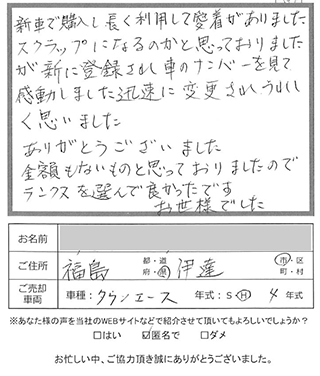 新車で購入し長く利用して密着がありました
スクラップになるのかと思っておりました
が新に登録され車のナンバーを見て
感動しました迅速に変更されうれし
く思いました
ありがとうございました
金額もないものと思っておりましたので
ランクスを選んで良かったです
お世様でした
お名前
ご住所 福島 都・道 府・県 伊達 市・区 町・村
ご売却車両 車種：クラウンエース 年式：S H 4 年式
※あなた様の声を当社のWEBサイトなどで紹介させて頂いてもよろしいでしょうか？
□はい ☑匿名で □ダメ
お忙しい中、ご協力頂き誠にありがとうございました。